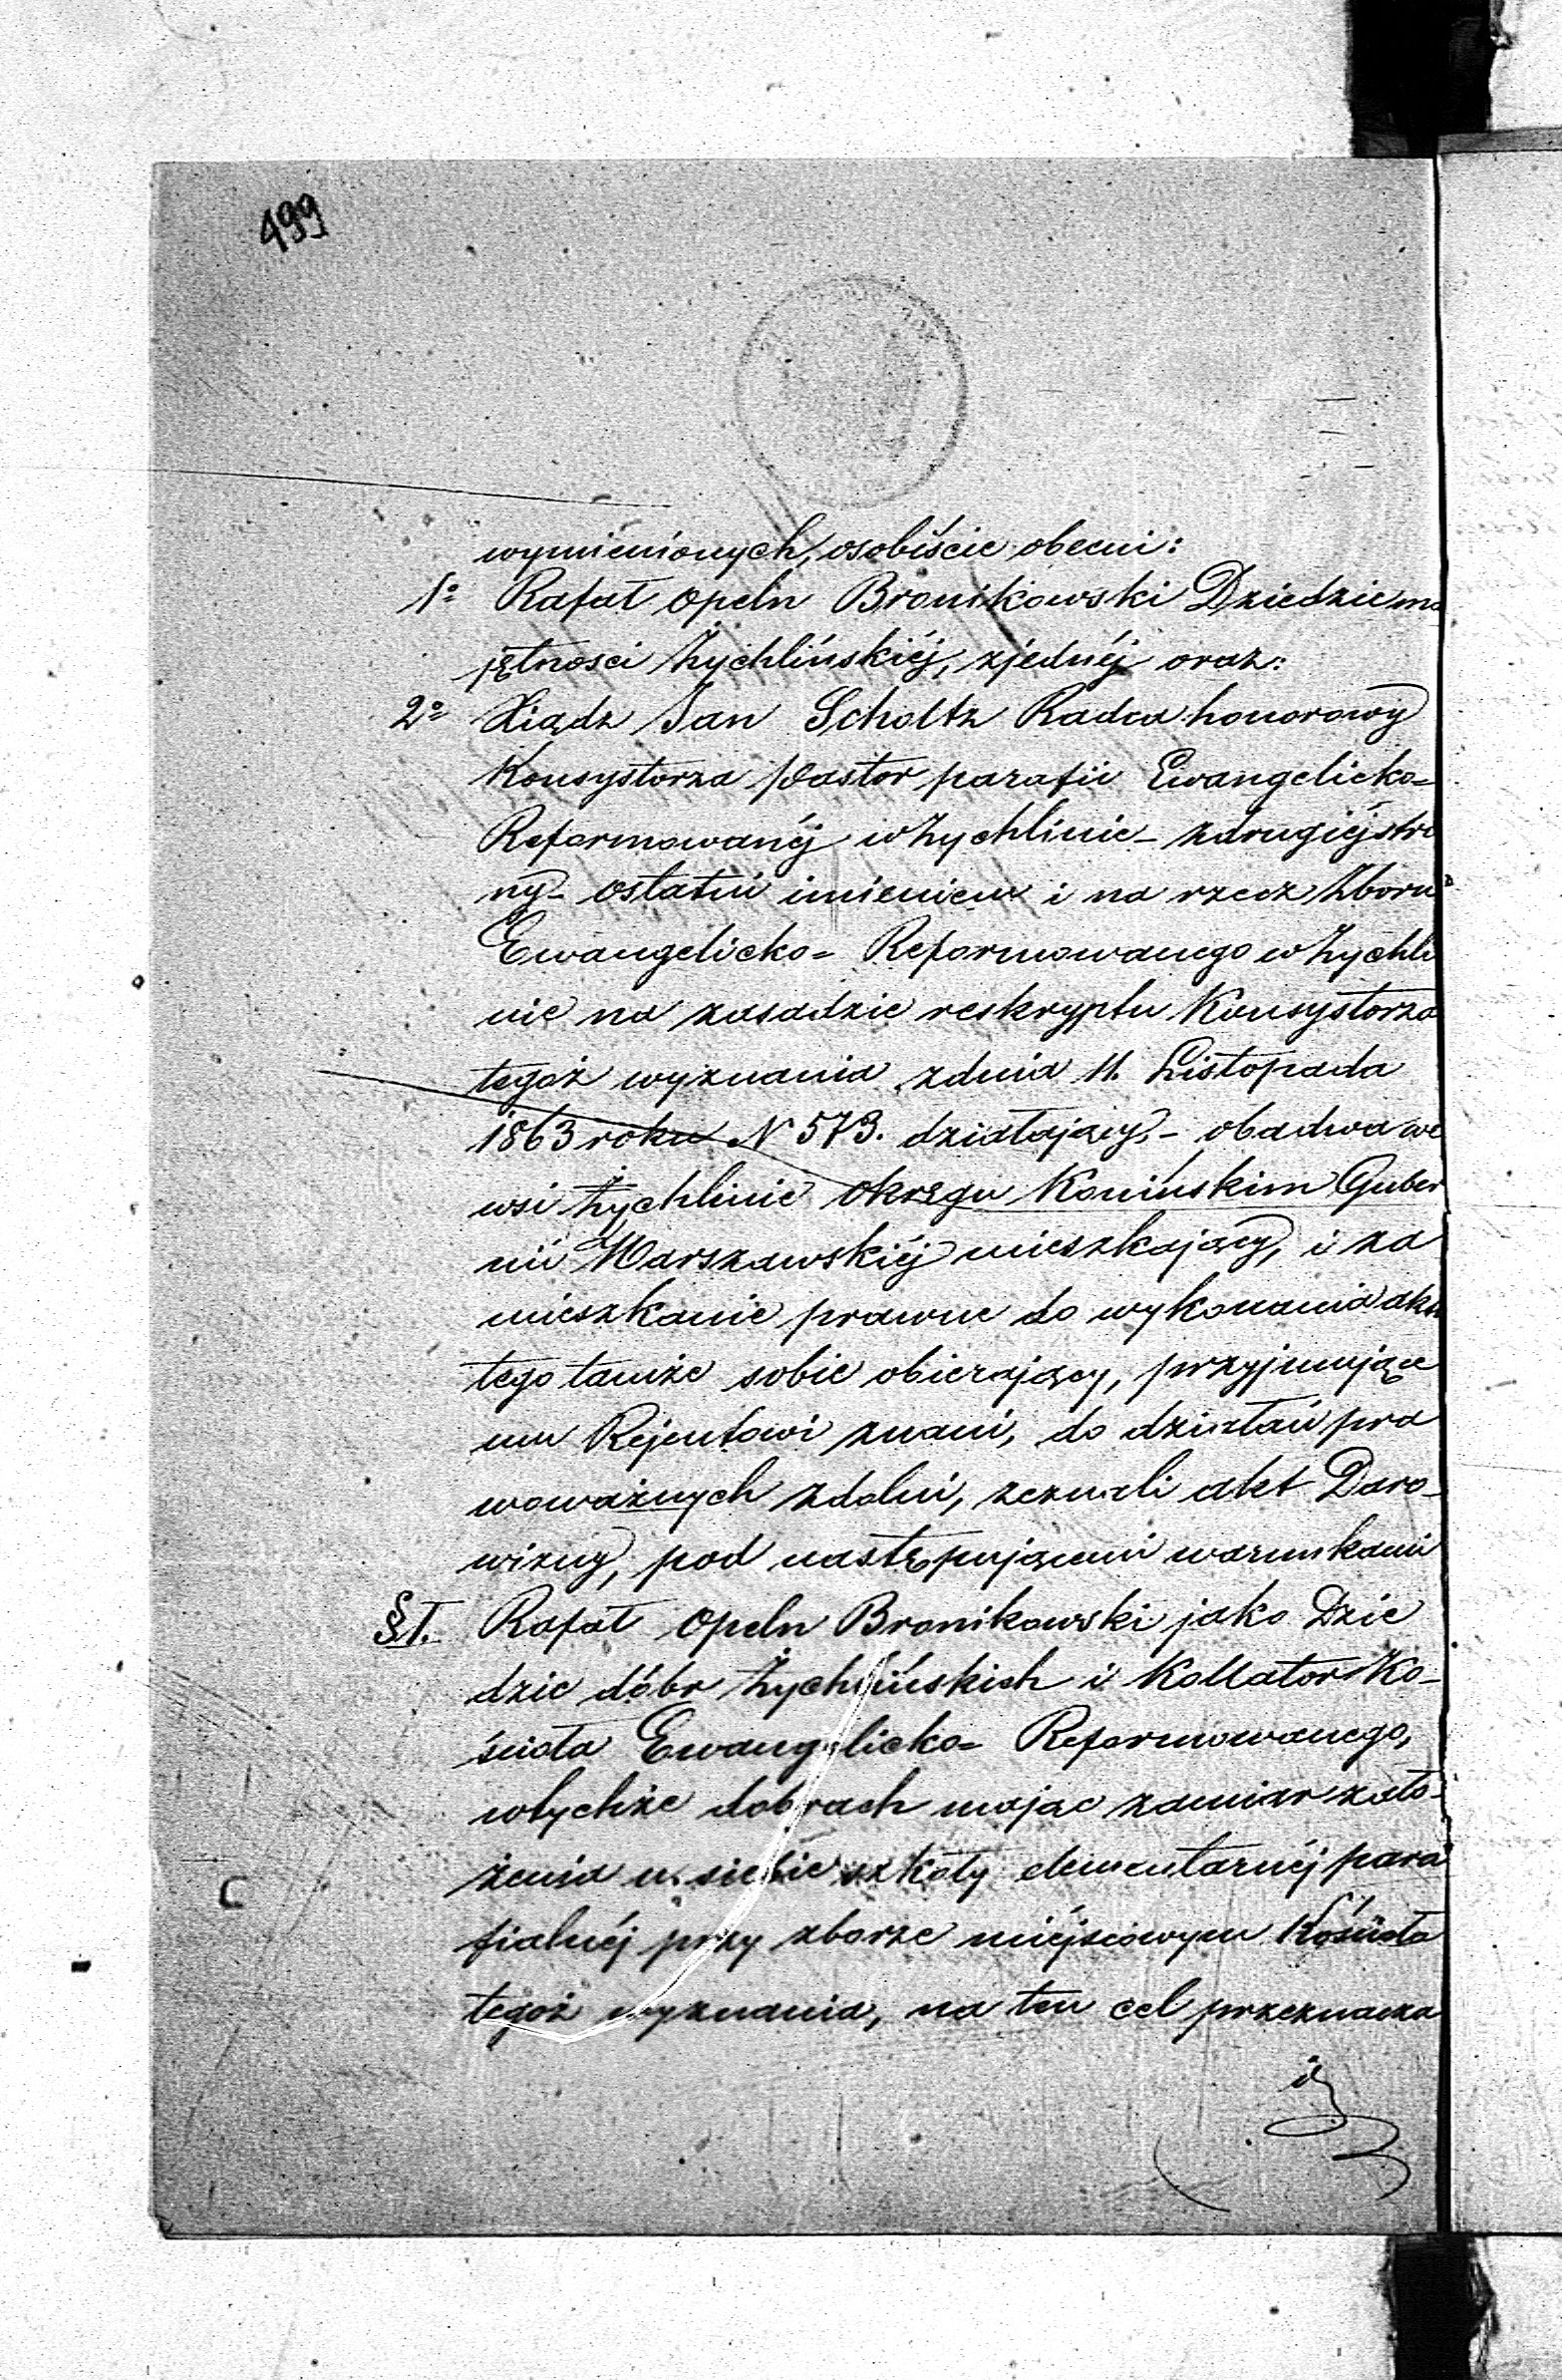 499
wymienionych, osobiście obecni:
1º Rafał Opeln Bronikowski Dziedzic ma
jętności Żychlińskiéj, zjednéj oraz:
2º Xiądz Jan Scholtz Radca honorowy
Konsystorza Pastor parafii Ewangelicko=
Reformowanéj w Żychlinie – zdrugiéj stro
ny – ostatni imieniem i na rzecz Zboru
Ewangelicko= Reformowanego w Żychli
nie na zasadzie reskryptu Konsystorza
tegoż wyznania zdnia 11. Listopada
1863 roku N 573. działający, – obadwa we
wsi Żychlinie Okręgu Konińskim Guber
nii Warszawskiéj mieszkający, i za
mieszkanie prawne do wykonania aktu
tego tamże sobie obierający, przyjmujące
mu Rejentowi znani, do działań pra
woważnych zdolni, zeznali akt Daro-
wizny, pod następującemi warunkami
§ I. Rafał Opeln Bronikowski jako Dzie
dzic dóbr Żychlińskich i Kollator Ko-
ścioła Ewangelicko= Reformowanego,
wtychże dobrach mając zamiar zało-
żenia u siebie szkoły elementarnéj para
fialnéj przy zborze miéjscowym Kościoła
tegoż wyznania, na ten cel przeznacza